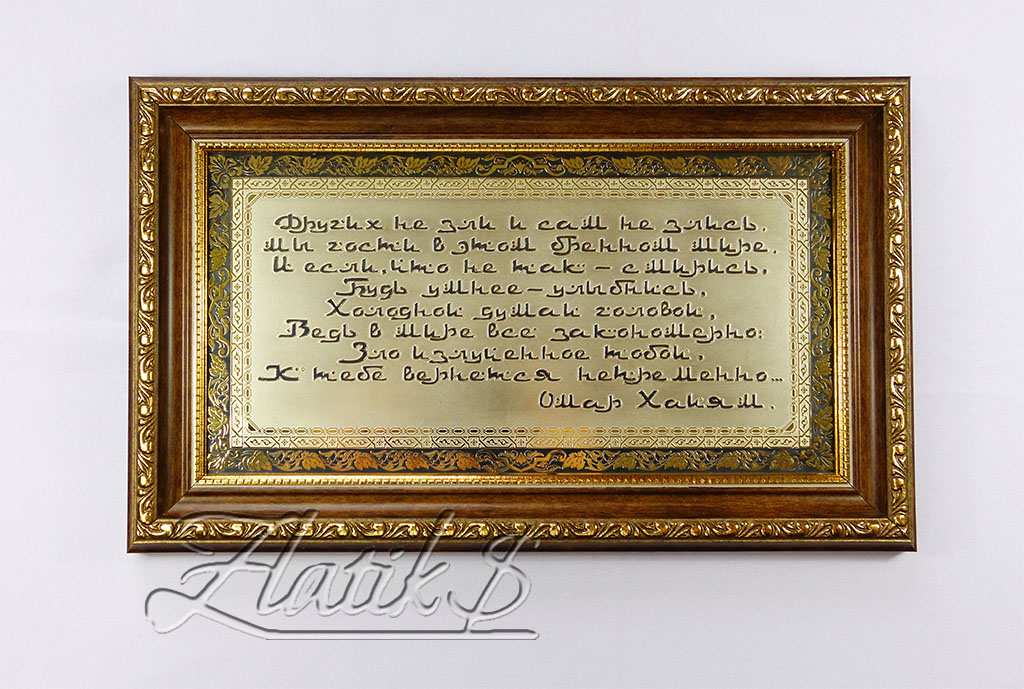 Других не зли и сам не злись,
Мы гости в этом бренном мире,
И если, что не так – смирись,
Будь умнее – улыбнись,
Холодной думай головой,
Ведь в мире все закономерно:
Зло излученное тобой,
К тебе вернется непременно...
Омар Хайям.
Zlatik $